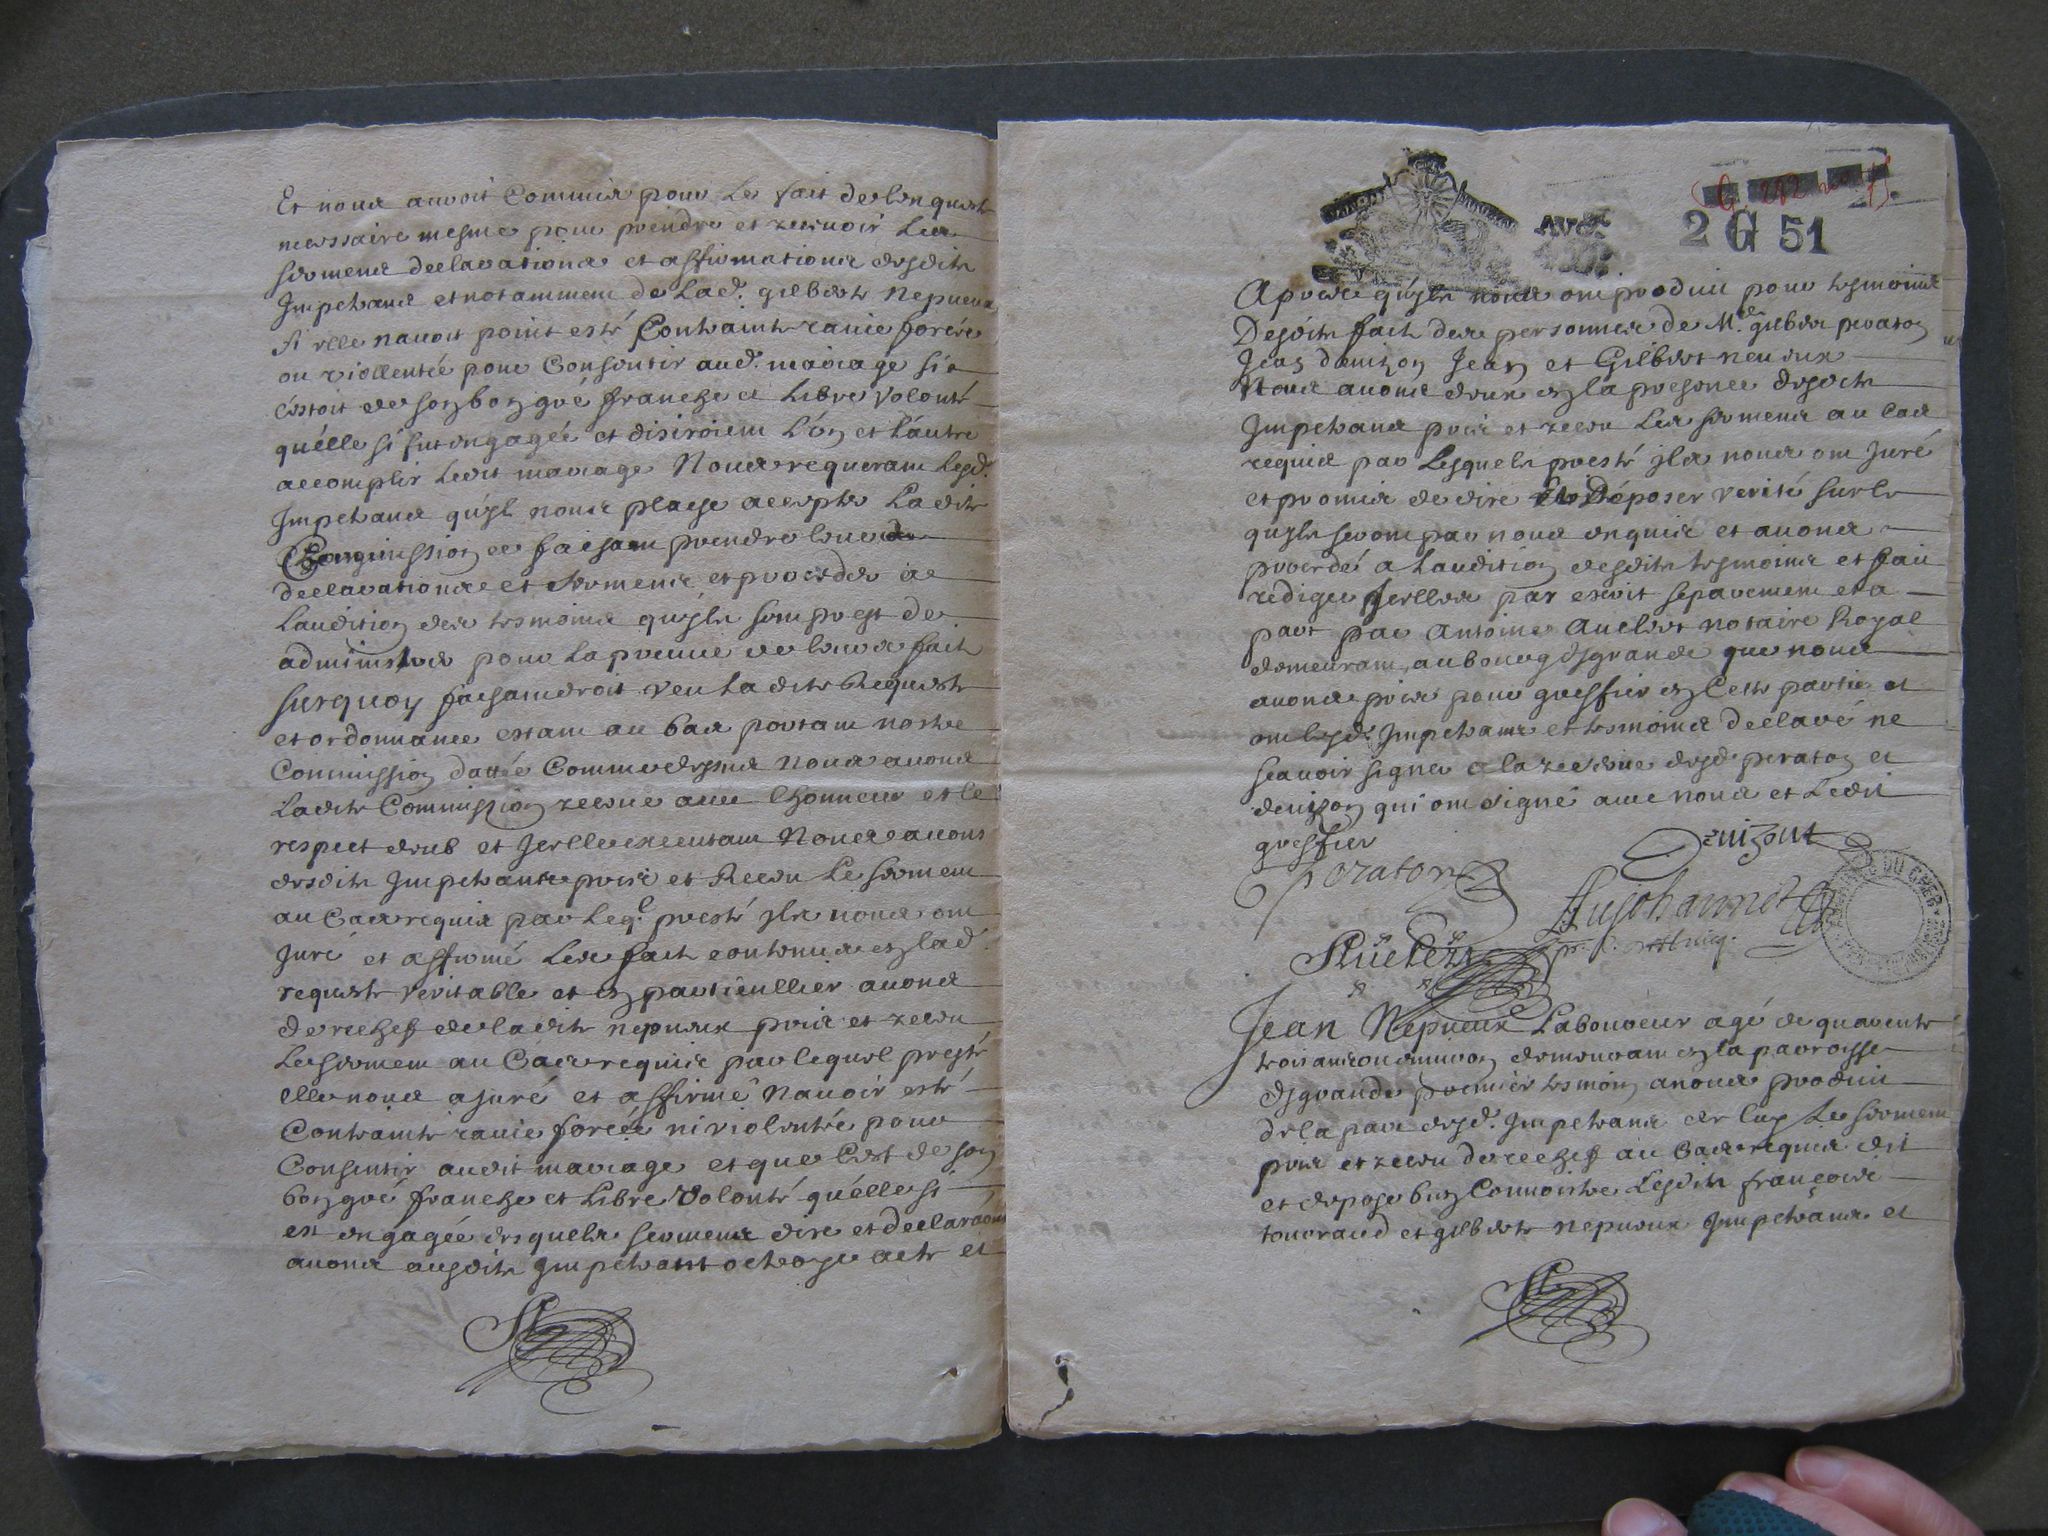 Et nous auroit Commis pour Le fait de lenqueste
necessaire mesme pour prendre et receuoir Les
sermens declarations et affirmations desdits
Jmpetrans et notamment de Lad. gilberte Nepueux
si elle nauoit point esté Contrainte rauie forcée
ou viollentée pour Consentir aud. mariage si
c'estoit de son bon gré franche et Libre volonté
qu'elle si fut engagée et disiroient L'un et L'autre
accomplir Ledit mariage Nous requerant lesd.
Jmpetrans qu'jls nous plaise accepter Ladite
Commission ce faisant prendre leurs
declarations et sermens et proceder a
Laudition des tesmoins qu'jls sont prest de
administrer pour La preuue de leurs faits
surquoy faisant droit veu La dite Requeste
et ordonnance estant au bas portant nostre
Commission dattée Comme dessus Nous auons
Ladite Commission receue auec lhonneur et le
respect deub et Jcelle executant Nous auons
desdits Jmpetrans pris et Receu Le serment
au Cas requis par Leql. presté jls nous ont
juré et affirmé Les faits contenus en lad.
requeste veritable et en particullier auons
derechef de ladite nepueux pris et receu
Le serment au Cas requis par lequel presté
elle nous a juré et affirmé Nauoir esté
Contrainte rauie forcée ni violentée pour
Consentir audit mariage et que C'est de son
bon gré franche et Libre volonté qu'elle si
est engagée desquels sermens dire et declarãons
auons ausdits jmpetrant octroye acte et
2 G 51
Apres qu'jls nous ont produit pour tesmoins
Desdits faits des personnes de Me. gilbert peraton
Jean denizon Jean et Gilbert neueux
Nous auons d'eux en la presence desdits
Jmpetrans pris et receu Les sermens au Cas
requis par Lesquels presté jls nous ont Juré
et promis de dire Et Déposer verité sur le
qu'jls seront par nous enquis et auons
procedé a Laudition desdits tesmoins et fait
rediger Jcelles par escrit separement et a
part par Antoine Auclert notaire Royal
demeurant au bourg dsgrande que nous
auons pris pour greffier en Cette partie et
ont lesd. Jmpetrans et tesmoins declaré ne
scauoir signer a la reserue desd. peraton et
denizon qui ont signé auec nous et Ledit
greffier
Denizont
peraton
Aujohannet
Auclert
Jean Nepueux Laboureur agé de quarente
trois ans ou enuiron demeurant en la parroisse
dsgrande premier tesmoin a nous produit
de la part desd. Jmpetrans de luy Le serment
pris et receu derechef au Cas requis dit
et depose bien Connoistre Lesdits françois
touraud et gilberte nepueux Jmpetrans et